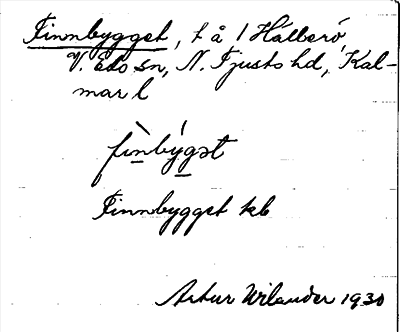 Finnbygget, t å I Hållserö,
V. Eds sn, N. Tjusts hd, Kal-
mar l
fìnbýgət
Finnbygget kb
Artur Wilander 1930